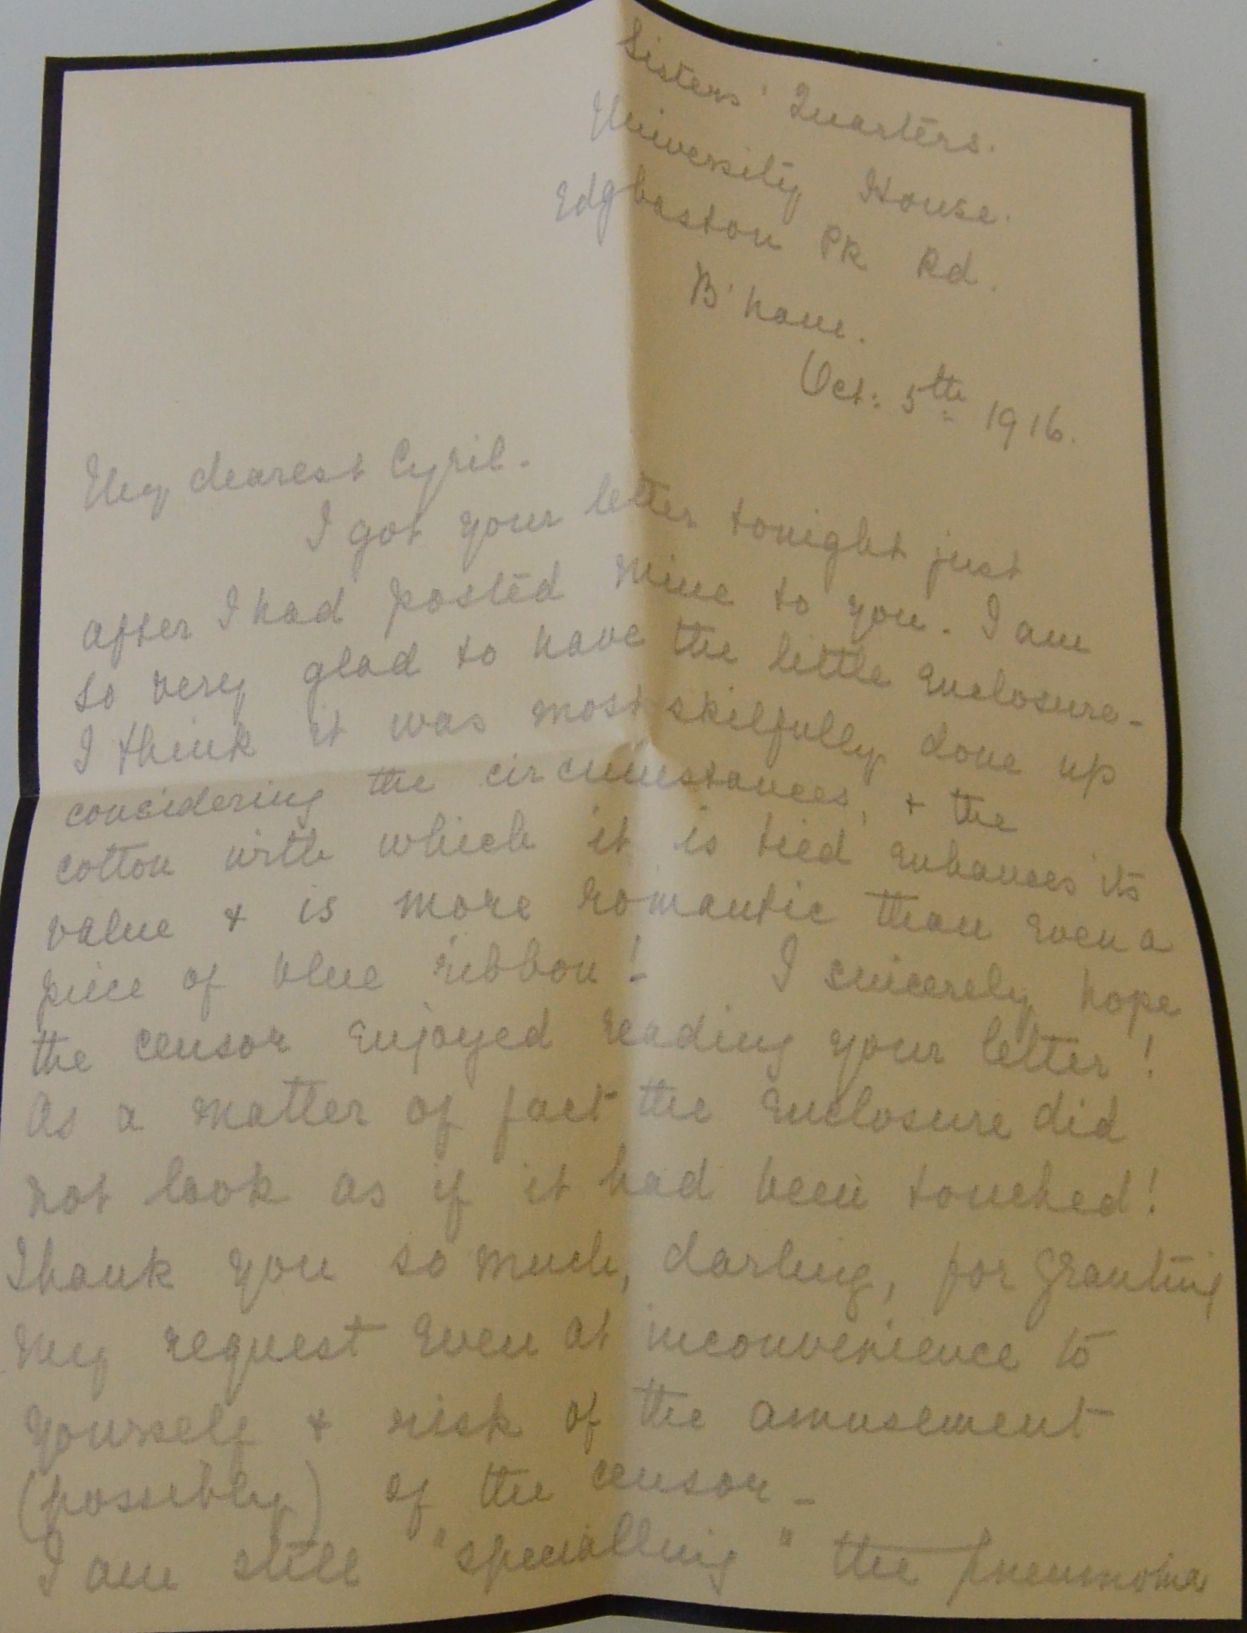 Sisters' Quarters.
University House.
Edgbaston Pk Rd.
B'ham.
Oct: 5th 1916.
My dearest Cyril.
I got your letter tonight just
after I had posted mine to you. I am
so very glad to have the little enclosure -
I think it was most skilfully done up
considering the circumstances, + the
cotton with which it is tied enhances its
value + is more romantic than even a
piece of blue ribbon! I sincerely hope
the censor enjoyed reading your letter!
As a matter of fact the enclosure did
not look as if it had been touched!
Thank you so much, darling, for granting
my request even at inconvenience to
yourself + risk of the amusement
(possibly) of the censor -
I am still "specialling" the pneumonia